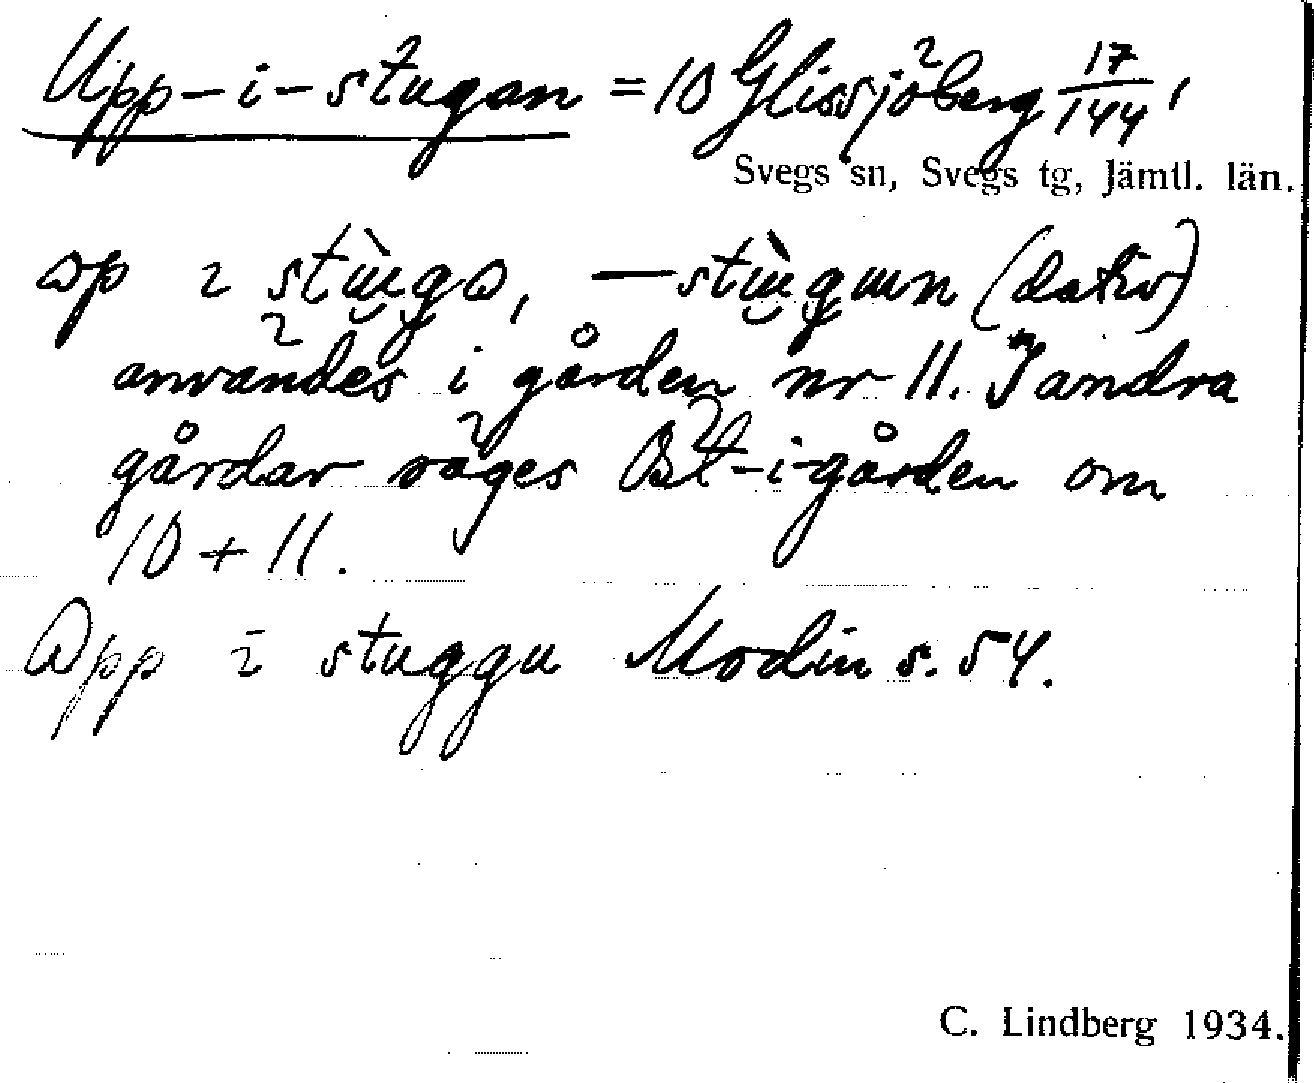 Upp-i-stugan = 10 Glissjöberg 17/144,
Svegs sn, Svegs tg, Jämtl. län.
användes i gården nr 11. I andra
gårdar säges Öst-i-gården om
10 + 11.
Opp i stuggu Modin s. 54.
C. Lindberg 1934.